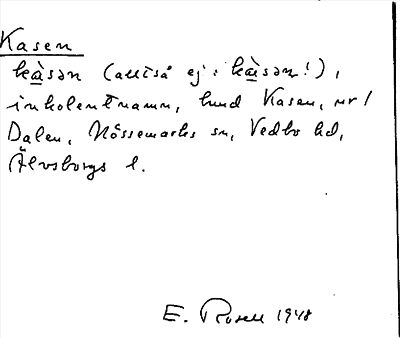 Kasen
kàsən (alltså ej: kàsən!),
inkolentnamn, lund Kasen, nr 1
Dalen, Nössemarks sn, Vedbo hd,
Älvsborgs l.
E. Rosell 1948